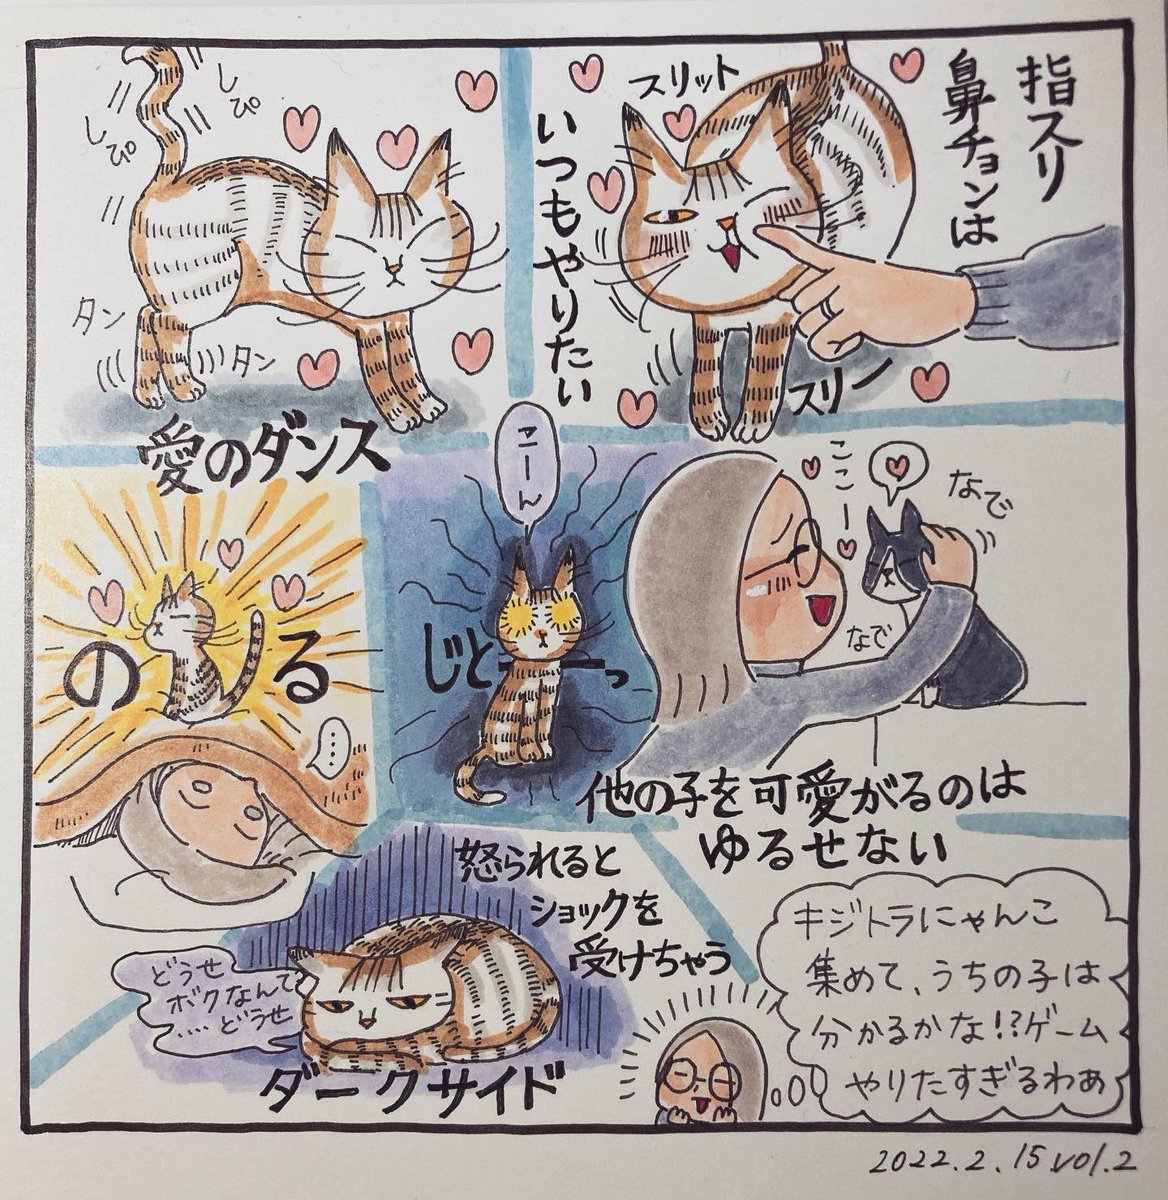 指スリ
鼻チョンは
いつもやりたい
スリット
スリン
しぴ
しぴ
タン
タン
愛のダンス
ここー
なで
なで
他の子を可愛がるのは
ゆるせない
こーん
じとーっ
のる
……
怒られると
ショックを
受けちゃう
どうせ
ボクなんて
‥‥どうせ
ダークサイド
キジトラにゃんこ
集めて、うちの子は
分かるかな!?ゲーム
やりたすぎるわぁ
2022.2.15 vol.2